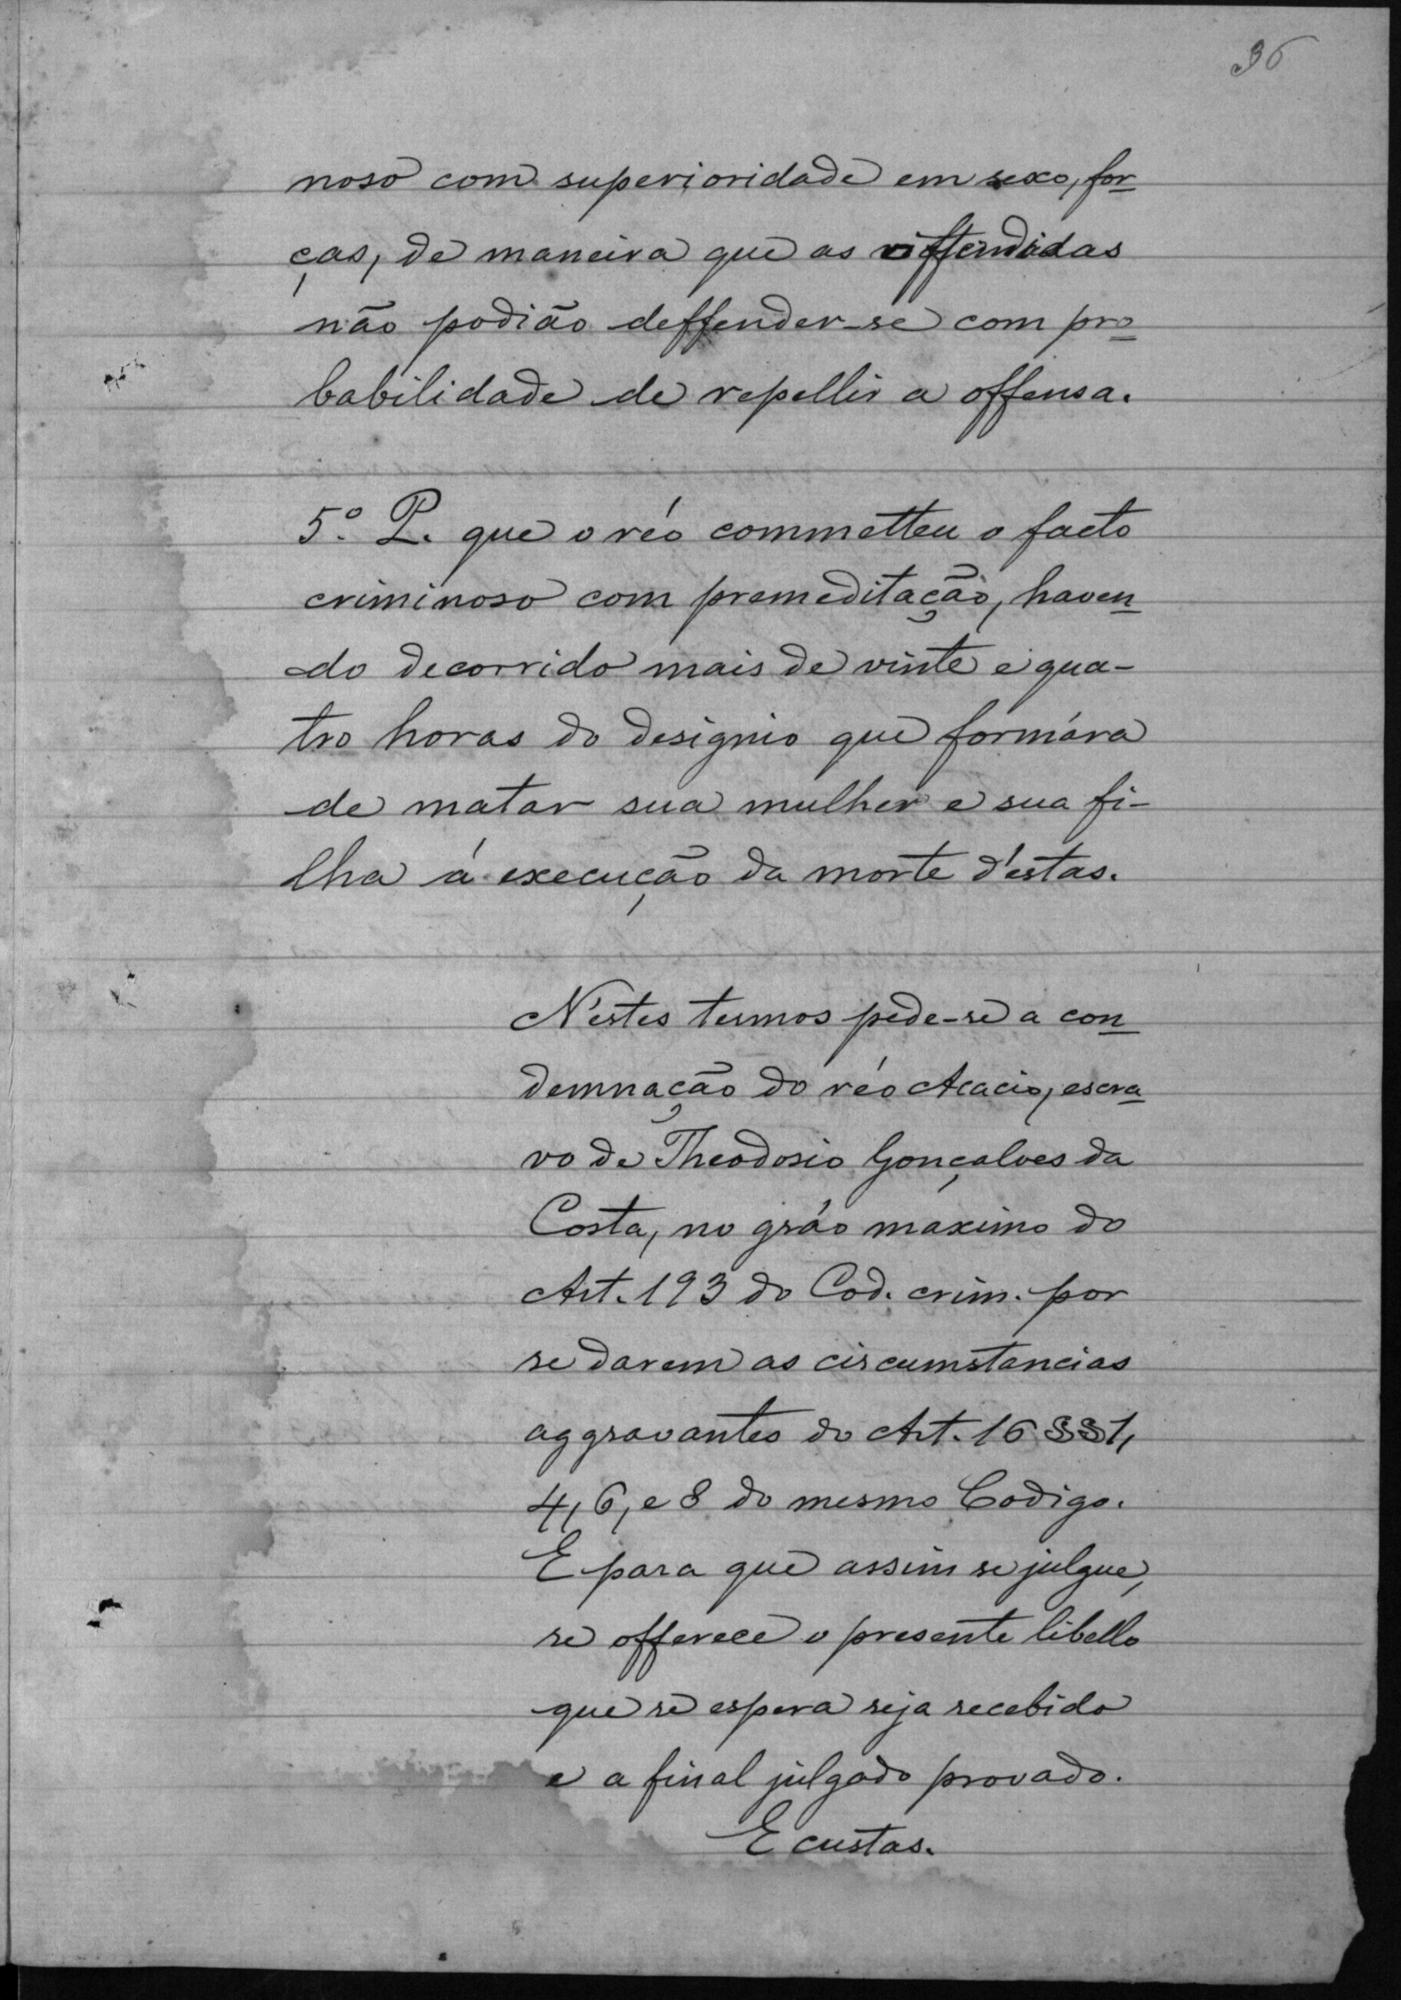 36
noso com superioridade em sexo, for-
ças, de maneira que as offendidas
não podião deffender-se com pro-
babilidade de repellir a offensa.
5º. P. que o réo commetteu o facto
criminoso com premeditação, haven-
do decorrido mais de vinte e qua-
tro horas do designio que formára
de matar sua mulher e sua fi-
lha á execução da morte d'estas.
N'estes termos pede-se a con-
demnação do réo Acacio, escra-
vo de Theodosio Gonçalves da
Costa, no gráo maximo do
Art. 193 do Cod. crim. por
se darem as circumstancias
aggravantes do Art. 16 §§ 1,
4, 6, e 8 do mesmo Codigo.
E para que assim se julgue,
se offerece o presente libello
que se espera seja recebido
e a final julgado provado.
E custas.